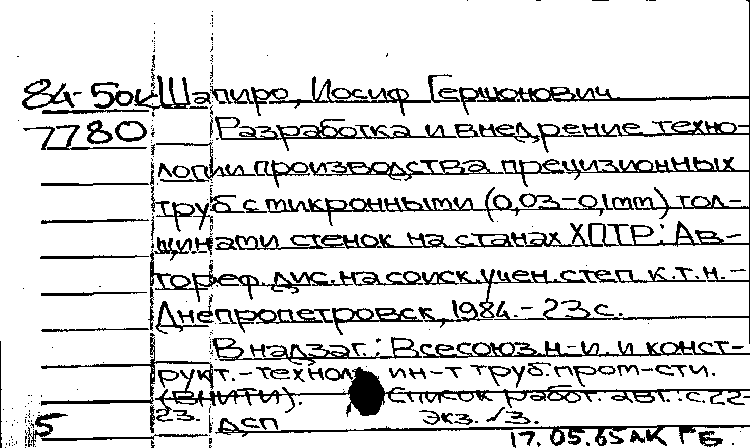 84-5ок Шапиро, Иосиф Гершонович
7780 Разработка и внедрение техно-
логии производства прецизионных
труб с микронными (0,03-0,1mm) тол-
щинами стенок на станах ХПТР: Ав-
тореф. дис. на соиск. учен. степ. к.т.н.-
Днепропетровск, 1984.- 23 с.
В надзаг.: Всесоюз. н-и. и конст-
рукт.-технол. ин-т труб. пром-сти.
(ВНИТИ). Список работ. авт.: с. 22-
23. ДСП экз. √3.
5 17.05.85 АК ГБ